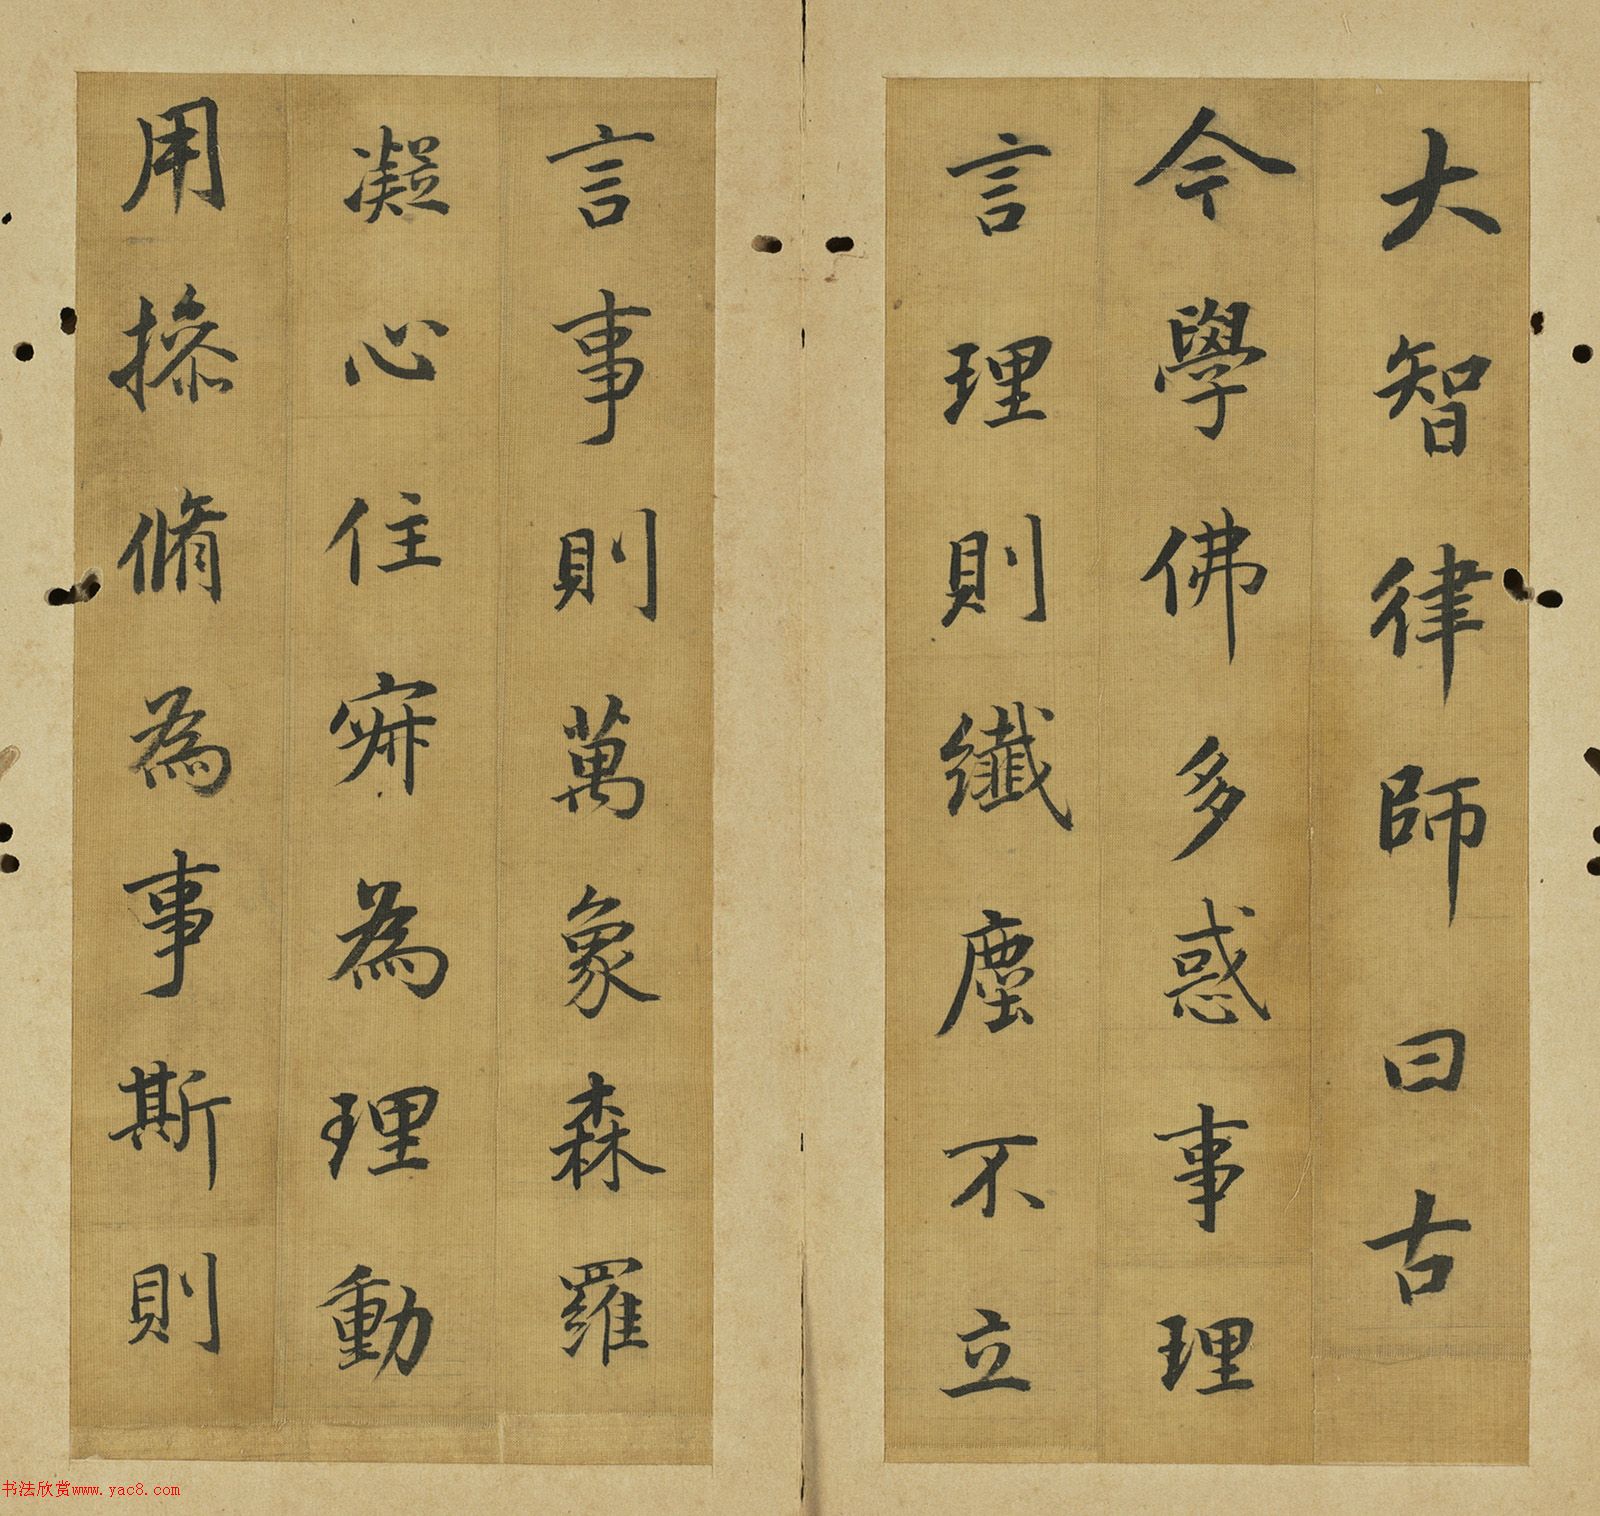 大智律師曰古
今學佛多惑事理
言理則纖塵不立
言事則萬象森羅
凝心住寂為理動
用操脩為事斯則
书法欣赏www.yac8.com